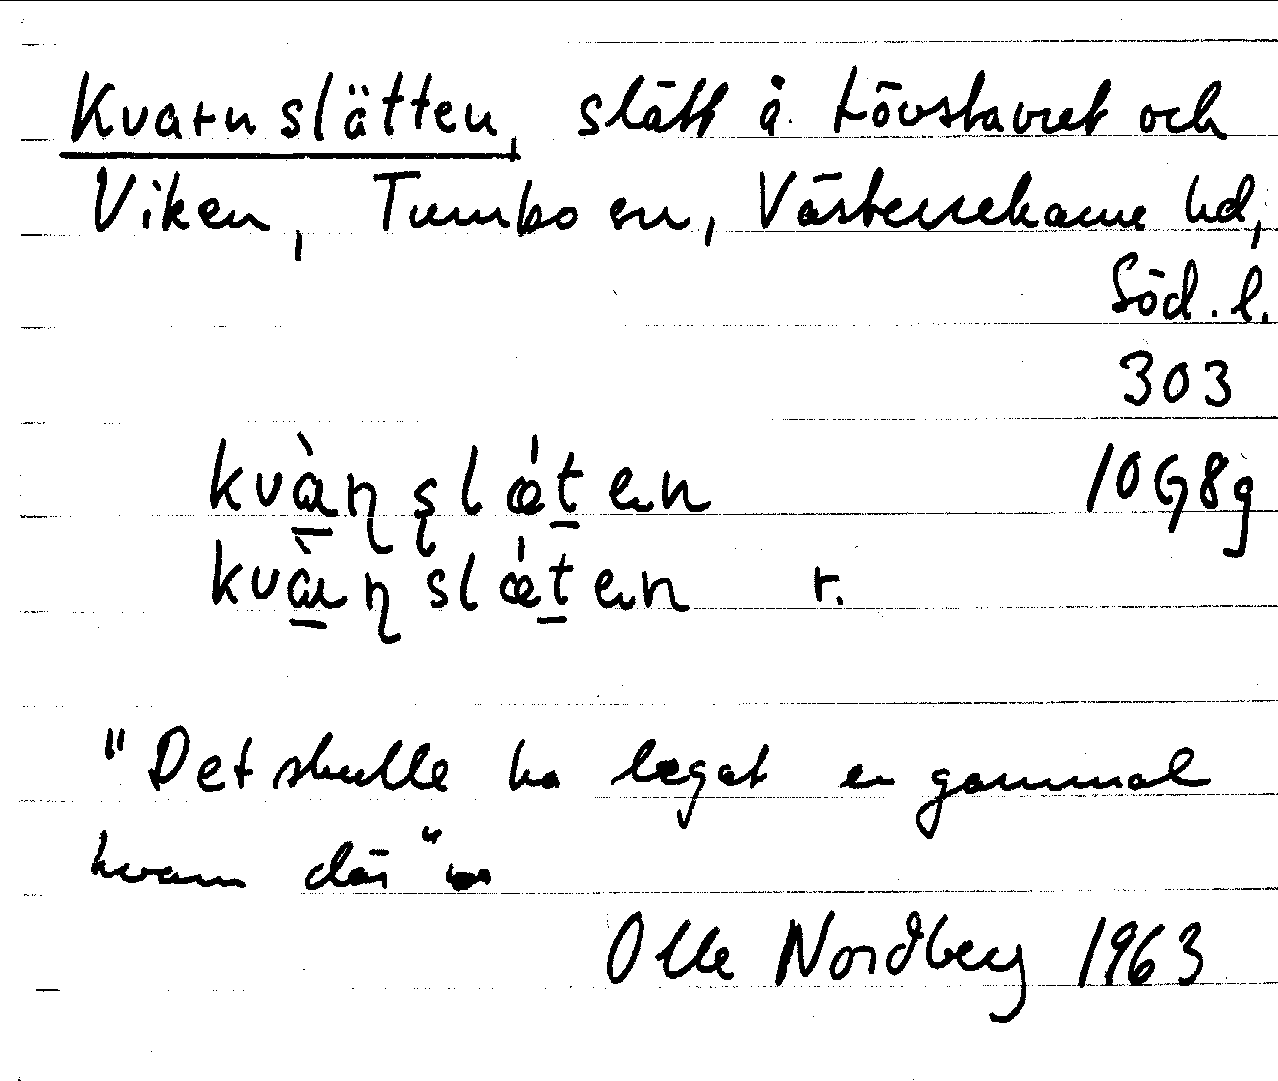 Kvarnslätten, slätt å Lövstavret och
Viken, Tumbo sn, Västerrekarne hd,
Söd. l.
303
kvàṇṣlǽten 10G8g
kvàṇslǽten r.
"Det skulle ha legat en gammal
kvarn där"
Olle Nordberg 1963